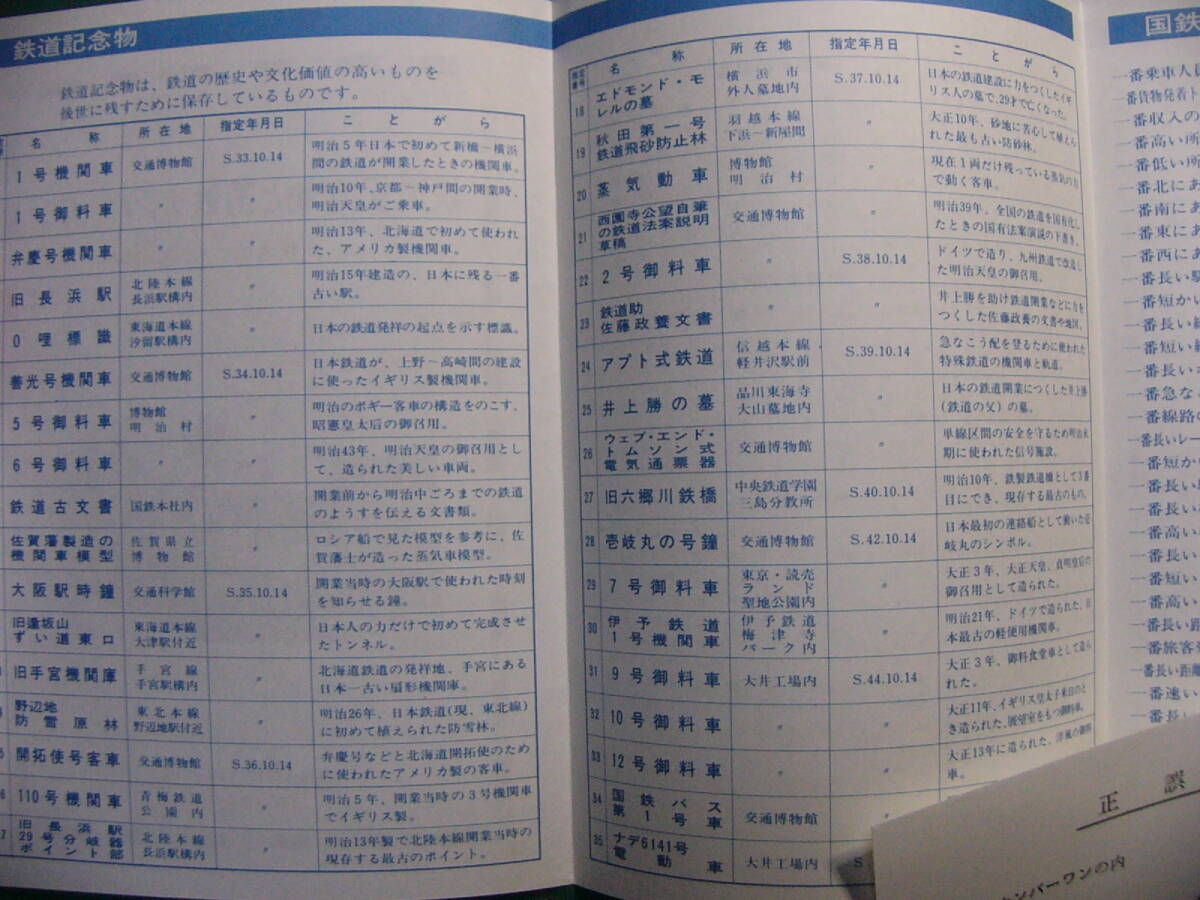 鉄道記念物
鉄道記念物は、鉄道の歴史や文化価値の高いものを
後世に残すために保存しているものです。
名 称 所在地 指定年月日 ことがら
1号機関車 交通博物館 S.33.10.14 明治5年日本で初めて新橋〜横浜
間の鉄道が開業したときの機関車。
1号御料車 〃 〃 明治10年、京都〜神戸間の開業時、
明治天皇がご乗車。
弁慶号機関車 〃 〃 明治13年、北海道で初めて使われ
た、アメリカ製機関車。
旧長浜駅 北陸本線 〃 明治15年建造の、日本に残る一番
長浜駅構内 古い駅。
0哩標識 東海道本線 〃 日本の鉄道発祥の起点を示す標識。
汐留駅構内
善光号機関車 交通博物館 S.34.10.14 日本鉄道が、上野〜高崎間の建設
に使ったイギリス製機関車。
5号御料車 博物館 〃 明治のボギー客車の構造をのこす、
明治村 昭憲皇太后の御召用。
6号御料車 〃 〃 明治43年、明治天皇の御召用とし
て、造られた美しい車両。
鉄道古文書 国鉄本社内 〃 開業前から明治中ごろまでの鉄道
のようすを伝える文書類。
佐賀藩製造の 佐賀県立 〃 ロシア船で見た模型を参考に、佐
機関車模型 博物館 賀藩士が造った蒸気車模型。
大阪駅時鐘 交通科学館 S.35.10.14 開業当時の大阪駅で使われた時刻
を知らせる鐘。
旧逢坂山 東海道本線 〃 日本人の力だけで初めて完成させ
ずい道東口 大津駅付近 たトンネル。
旧手宮機関庫 手宮線 〃 北海道鉄道の発祥地、手宮にある
手宮駅構内 日本一古い扇形機関庫。
野辺地 東北本線 〃 明治26年、日本鉄道(現、東北線)
防雪原林 野辺地駅付近 に初めて植えられた防雪林。
開拓使号客車 交通博物館 S.36.10.14 弁慶号などと北海道開拓使のため
に使われたアメリカ製の客車。
110号機関車 青梅鉄道 〃 明治5年、開業当時の3号機関車
公園内 でイギリス製。
旧長浜駅 北陸本線 〃 明治13年製で北陸本線開業当時の
29号分岐器 長浜駅構内 現存する最古のポイント。
ポイント部
名 称 所在地 指定年月日 ことがら
18 エドモンド・モ 横浜市 S.37.10.14 日本の鉄道建設に力をつくしたイギ
レルの墓 外人墓地内 リス人の墓で、29才で亡くなった。
19 秋田第一号 羽越本線 〃 大正10年、砂地に苦心して植えら
鉄道飛砂防止林 下浜〜新屋間 れた最も古い防砂林。
20 蒸気動車 博物館 〃 現在1両だけ残っている蒸気の力
明治村 で動く客車。
21 西園寺公望自筆 交通博物館 〃 明治39年、全国の鉄道を国有化し
の鉄道法案説明 たときの国有法案演説の下書き。
草稿
22 2号御料車 〃 S.38.10.14 ドイツで造り、九州鉄道で改造し
た明治天皇の御召用。
23 鉄道助 〃 〃 井上勝を助け鉄道開業などに力を
佐藤政養文書 つくした佐藤政養の文書や地図。
24 アプト式鉄道 信越本線・ S.39.10.14 急なこう配を登るために使われた
軽井沢駅前 特殊鉄道の機関車と軌道。
25 井上勝の墓 品川東海寺 〃 日本の鉄道開業につくした井上勝
大山墓地内 (鉄道の父)の墓。
26 ウェブ・エンド・ 交通博物館 〃 単線区間の安全を守るため明治末
トムソン式 期に使われた信号施設。
電気通票器
27 旧六郷川鉄橋 中央鉄道学園 S.40.10.14 明治10年、鉄製鉄道橋として3番
三島分教所 目にでき、現存する最古のもの。
28 壱岐丸の号鐘 交通博物館 S.42.10.14 日本最初の連絡船として働いた壱
岐丸のシンボル。
29 7号御料車 東京・読売 〃 大正3年、大正天皇、貞明皇后の
ランド 御召用として造られた。
聖地公園内
30 伊予鉄道 伊予鉄道 〃 明治21年、ドイツで造られた、日
1号機関車 梅津寺 本最古の軽便用機関車。
パーク内
31 9号御料車 大井工場内 S.44.10.14 大正3年、御料食堂車として造ら
れた。
32 10号御料車 〃 〃 大正11年、イギリス皇太子来日のと
き造られた、展望室をもつ御料車。
33 12号御料車 〃 〃 大正13年に造られた、洋風の御料
車。
34 国鉄バス 交通博物館
第1号車
35 ナデ6141号 大井工場内 S.
電動車
国鉄
一番乗車人
一番貨物発着ト
一番収入の
一番高い所
一番低い所
一番北にあ
一番南にあ
一番東にあ
一番西にあ
一番長い
一番短かい
一番長い
一番短い
一番長い
一番急な
一番線路の
一番長いレー
一番短か
一番長い
一番長い
一番高い
一番長い
一番短い
一番高い
一番長い距
一番旅客
一番長い距離
一番速い
一番長い
正誤
ンバーワンの内